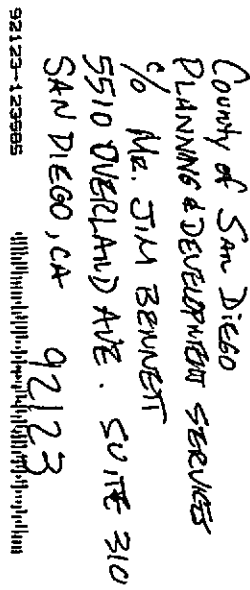 County of San Diego
PLANNING & DEVELOPMENT SERVICES
c/o MR. JIM BENNETT
5510 OVERLAND AVE. SUITE 310
SAN DIEGO, CA 92123
92123-123985